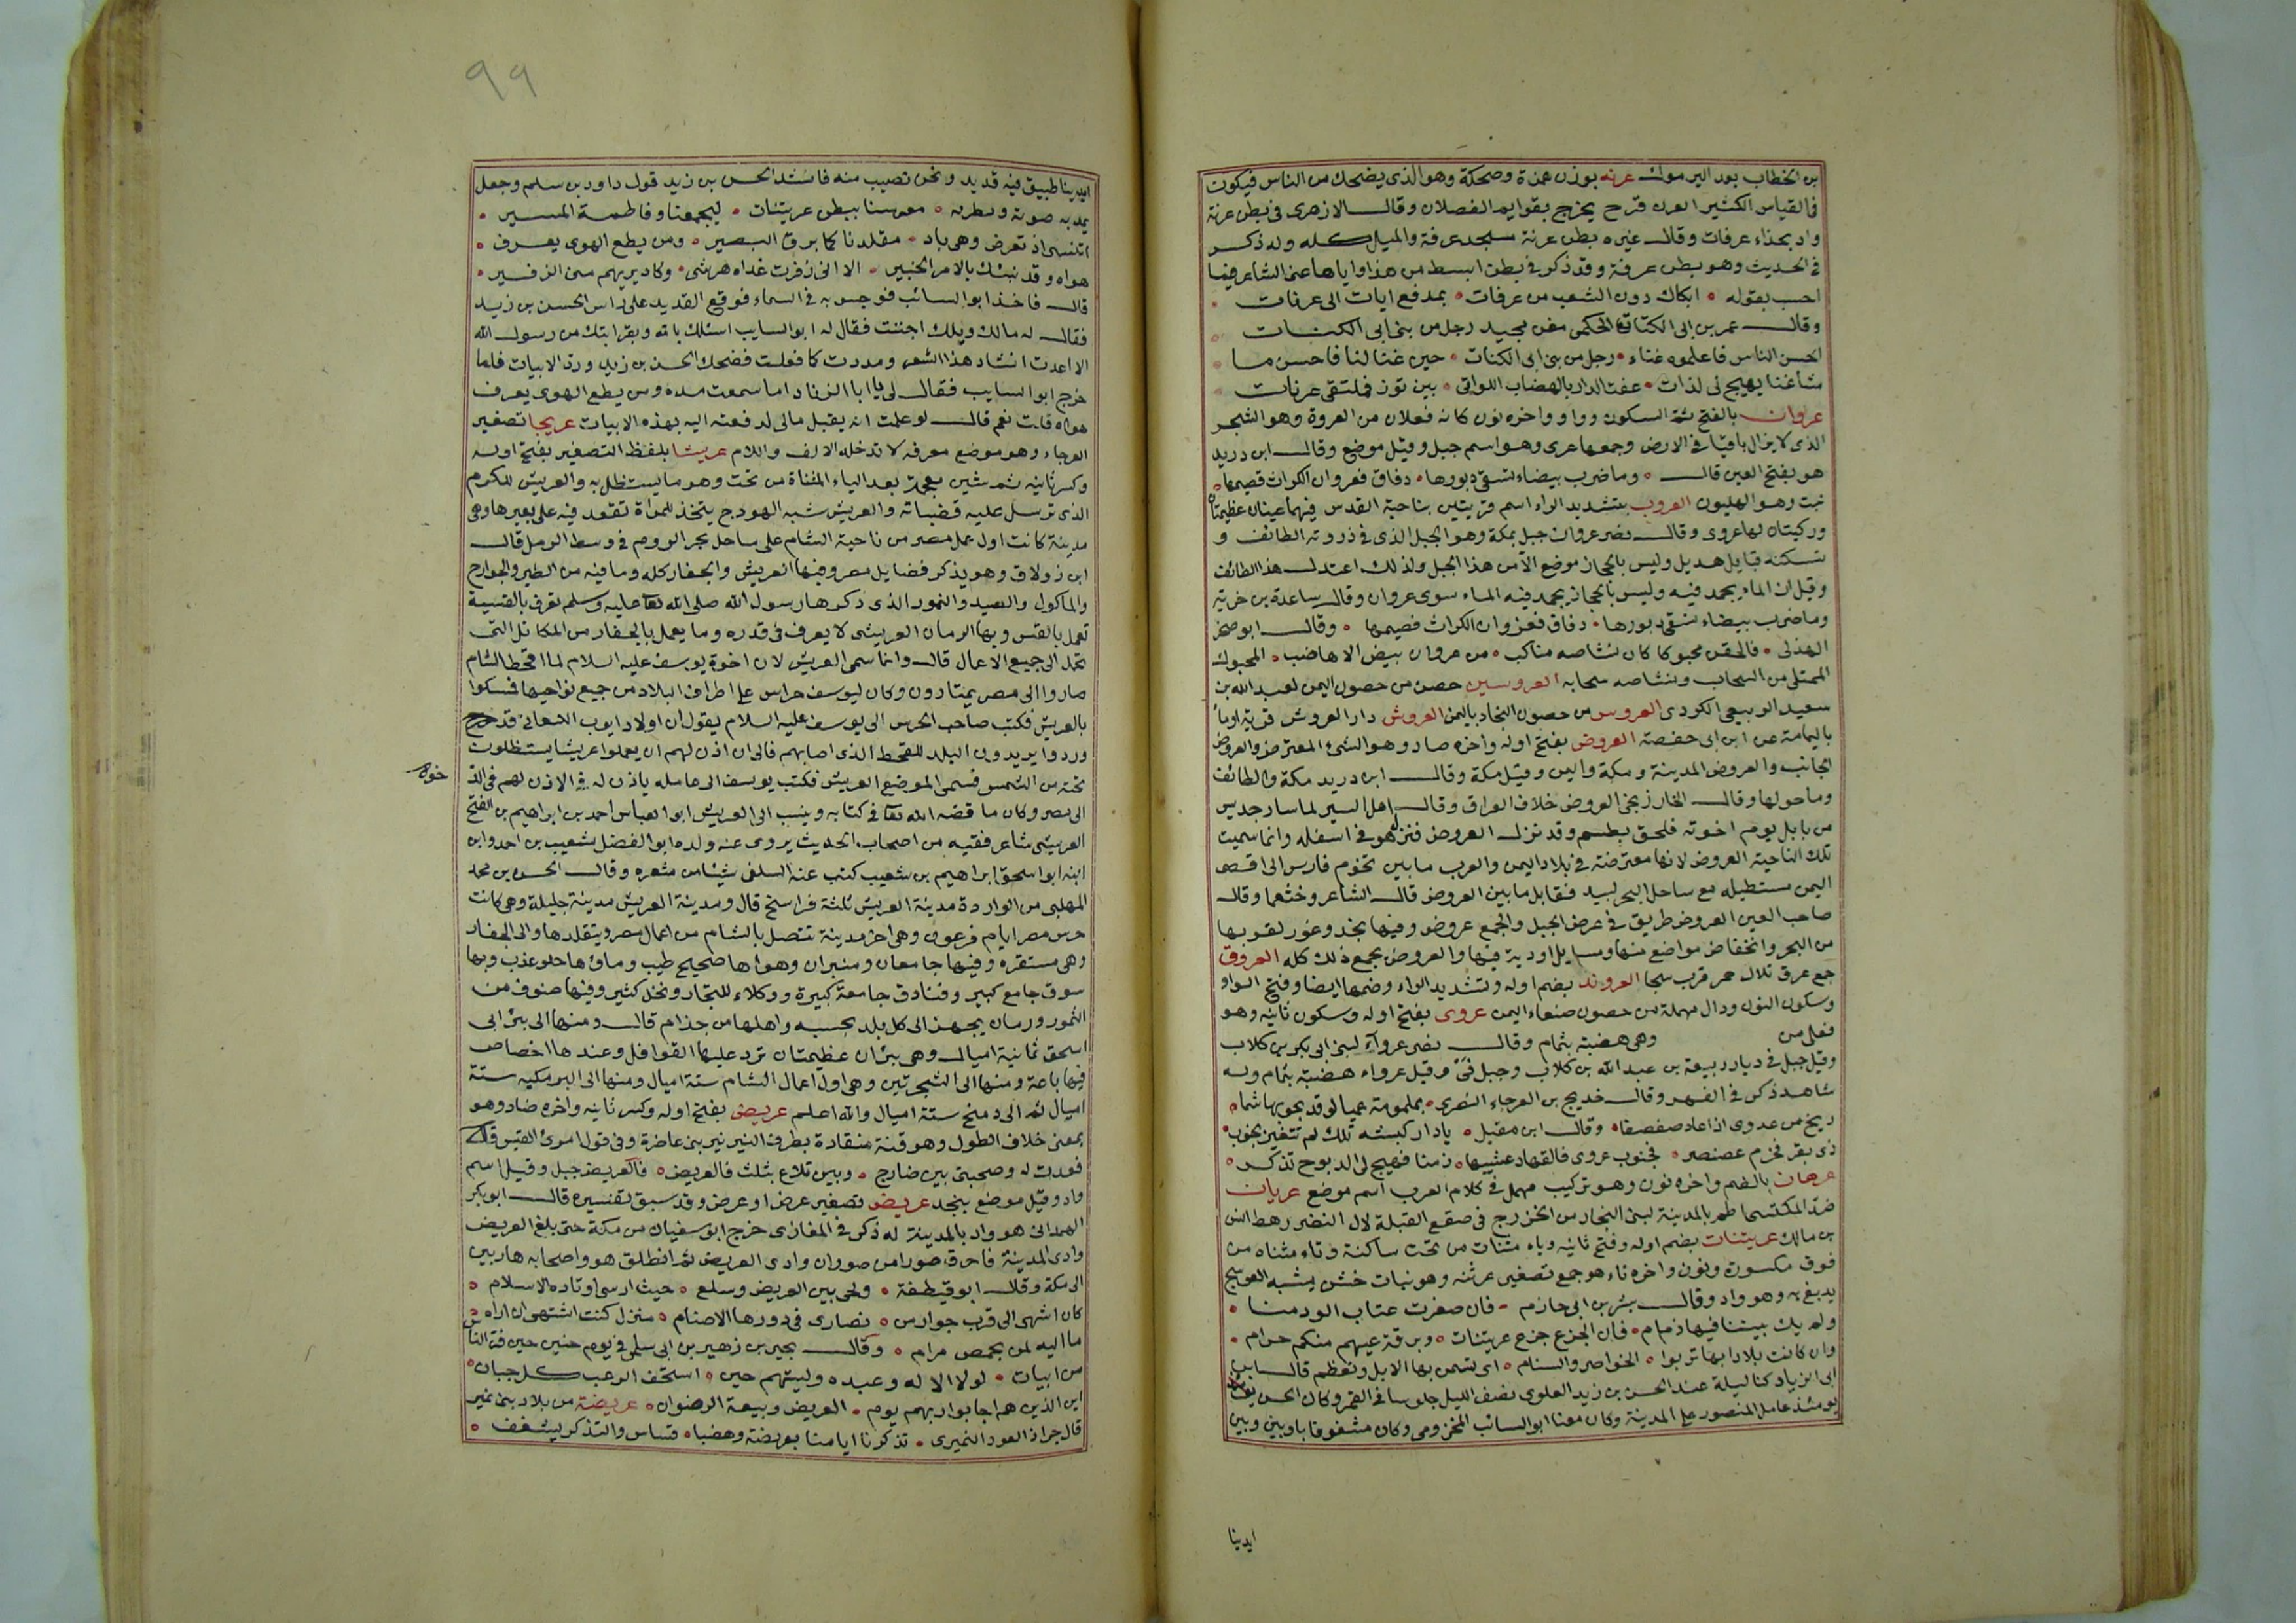 بن الخطاب بعد اليرموك عرنه بوزن همزة وضحكة وهو الذى يضحك من الناس فيكون
فى القياس الكثير العرن قرح يخرج بقوايم الفصلان وقال الازهرى فى بطن عرنة
واد بحذاء عرفات وقال غيره بطن عرنة مسجد عرفة والميل كله وله ذكر
فى الحديث وهو بطن عرفة وقد ذكر فى بطن ابسط من هذا واياها عنى الشاعر فيما
احسب بقوله ابكاك دون الشعب من عرفات بمدفع ايات الى عرنات
وقال عمر بن ابى الكنات الحكمى مغن مجيد رجل من بنى ابى الكنات
احسن الناس فاعلموه غناء رجل من بنى ابى الكنات حين غنا لنا فاحسن ما
شاء غنا يهيج لى لذات عفت الدار بالهضاب اللواتى بين توز فملتقى عرنات
عروان بالفتح ثم السكون وواو واخره نون كانه فعلان من العروة وهو الشجر
الذى لا يزال باقيا فى الارض وجمعها عرى وهو اسم جبل وقيل موضع وقال ابن دريد
هو بفتح العين قال وما ضرب بيضاء تسقى دبورها دفاق فعروان الكراث فصيمها
نبت وهو الهليون العروب بتشديد الراء اسم قريتين بناحية القدس فيهما عينان عظيمتان
وركيتان لها عروى وقال نصر عروان جبل بمكة وهو الجبل الذى فى ذروته الطائف و
تسكنه قبايل هذيل وليس بالحجاز موضع الا من هذا الجبل ولذلك اعتدل هذا الطائف
وقيل ان الماء يجمد فيه وليس بالحجاز يجمد فيه الماء سوى عروان وقال ساعدة بن خرية
وما ضرب بيضاء تسقى دبورها دفاق فعروان الكراث فصيمها وقال ابو صخر
الهذلى فالحقن محبوكا كان نشاصه مناكب من عروان بيض الاهاضب المحبوك
الممتلى من السحاب ونشاصه سحابه العروسين حصن من حصون اليمن لعبد الله بن
سعيد الربيعى الكردى العروس من حصون النجاد باليمن العروش دار العروش قرية او ما
باليمامة عن ابن ابى حفصة العروض بفتح اوله واخره ضاد وهو الشئ المعترض والعروض
الجانب والعروض المدينة ومكة واليمن وقيل مكة وقال ابن دريد مكة والطائف
وما حولها وقال الخارزنجى العروض خلاف العراق وقال اهل السير لما سار جديس
من بابل يوم اخوته فلحق بطسم وقد نزل العروض فنزل هو فى اسفله وانما سميت
تلك الناحية العروض لانها معترضة فى بلاد اليمن والعرب ما بين تخوم فارس الى اقصى
اليمن مستطيله مع ساحل البحر لبيد فقابل ما بين العروض قال الشاعر وخثعما وقال
صاحب العين العروض طريق فى عرض الجبل والجمع عروض وفيها نجد وغور لقربها
من البحر وانخفاض مواضع منها ومسايل اودية فيها والعروض بجمع ذلك كله العروق
جمع عرق تلال حمر قرب سجا العروند بضم اوله وتشديد الراء وضمها ايضا وفتح الواو
وسكون النون ودال مهملة من حصون صنعاء اليمن عروى بفتح اوله وسكون ثانيه وهو
فعلى من وهى هضبة بشمام وقال نصر عروآء لبنى ابى بكر بن كلاب
وقيل جبل فى ديار ربيعة بن عبد الله بن كلاب وجبل فى وقيل عرواء هضبة بشمام وله
شاهد ذكر فى الفهر وقال خديج بن العرجاء النصرى بملمومة عميا لو قد بجو بها شمام
ريخ من عدوى اذا عاد صفصفا وقال ابن مقبل يا دار كبشه تلك لم تتغير بجنوب
ذى بقر فخرم عصنصر فجنوب عروى فالقهاد عشيها زمنا فهيج لى الدبوح تذكر
عرهان بالضم واخره نون وهو تركيب مهمل فى كلام العرب اسم موضع عريان
ضد المكتسى اطم بالمدينة لبنى النجار من الخزرج فى صقع القبلة لال النضر رهط انس
بن مالك عريتنات بضم اوله وفتح ثانيه وياء مثنات من تحت ساكنة وتاء مثناه من
فوق مكسورة ونون واخره تاء هو جمع تصغير عرتنه وهو نبات خشن يشبه العوسج
يدبغ به وهو واد وقال بشر بن ابى حازم فان صفرت عتاب الود منا
ولم يك بيننا فيها ذمام فان الجزع جزع عريتنات وبرقة عيهم منكم حرام
وان كانت بلادا بها تربوا الخواصر والسنام اى تسمن بها الابل وتعظم قال ابن
ابى الزياد كنا ليلة عند الحسن بن زيد العلوى نصف الليل جلوسا فى القمر وكان الحسن
يومئذ عامل المنصور على المدينة وكان معنا ابو السائب المخزومى وكان مشغوفا باوبين وبين
ايدينا
٩٩
ايدينا طبيق فيه قديد ونحن نصيب منه فانشد الحسن بن زيد قول داود بن سلم وجعل
يمد به صوته ويطربه معرسنا ببطن عريتنات ليجمعنا وفاطمة المسير
اتنسى اذ تعرض وهى باد مقلدنا كما برق البصير ومن يطع الهوى يعرف
هواه وقد نبئك بالامر الخبير الا انى زفرت غداة هرشى وكاد يريهم منى الزفير
قال فاخذ ابو السائب فوجس به فى السماء فوقع القديد على راس الحسن بن زيد
فقال له مالك ويلك اجننت فقال له ابو السايب اسئلك بالله وبقرابتك من رسول الله
الا اعدت انشاد هذا الشعر ومددت كما فعلت فضحك الحسن بن زيد ورد الابيات فلما
خرج ابو السايب فقال لى يا ابا الزناد اما سمعت مده ومن يطع الهوى يعرف
هواه قلت نعم قال لو علمت انه يقبل مالى لدفعته اليه بهذه الابيات عريجا تصغير
العرجاء وهو موضع معرفه لا تدخله الالف واللام عريشا بلفظ التصغير بفتح اوله
وكسر ثانيه ثم شين معجمة بعد الياء المثناة من تحت وهو ما يستظل به والعريش للكرم
الذى ترسل عليه قضبانه والعريش شبه الهودج يتخذ للمراة تقعد فيه على بعيرها وهى
مدينة كانت اول عمل مصر من ناحية الشام على ساحل بحر الروم فى وسط الرمل قال
ابن زولاق وهو يذكر فضايل مصر وفيها العريش والجفار كله وما فيه من الطير والجوارح
والماكول والصيد والتمور الذى ذكرها رسول الله صلى الله تعا عليه وسلم تعرف بالقسية
تعمل بالقس وبها الرمان العريشى لا يعرف فى قدره وما يعمل بالجفار من المكاتل التى
تحمل الى جميع الاعمال قال وانما سمى العريش لان اخوة يوسف عليه السلام لما اقحط الشام
صاروا الى مصر يمتارون وكان ليوسف حراس على اطراف البلاد من جميع نواحيها فمسكوا
بالعريش فكتب صاحب الحرس الى يوسف عليه السلام يقول ان اولاد ايوب الكنعانى قد
وردوا يريدون البلد للقحط الذى اصابهم فالى ان اذن لهم ان يعملوا عريشا يستظلون
تحته من الشمس فسمى الموضع العريش فكتب يوسف الى عامله ياذن له فى الاذن لهم فى الد
خول
الى مصر وكان ما قصه الله تعا فى كتابه وينسب الى العريش ابو العباس احمد بن ابراهيم بن الفتح
العريشى شاعر فقيه من اصحاب الحديث يروى عنه ولده ابو الفضل شعيب بن احمد وابن
ابنه ابو اسحق ابراهيم بن شعيب كتب عنه السلفى شيئا من شعره وقال الحسن بن محمد
المهلبى من الواردة مدينة العريش ثلثة فراسخ قال ومدينة العريش مدينة جليلة وهى كانت
حرس مصر ايام فرعون وهى اخر مدينة تتصل بالشام من اعمال مصر ويتقلدها والى الجفار
وهى مستقره وفيها جامعان ومنبران وهواها صحيح طيب وماؤها حلو عذب وبها
سوق جامع كبير وفنادق جامعة كبيرة ووكلاء للتجار ونخل كثير وفيها صنوف من
التمور ورمان يجهز الى كل بلد بحسبه واهلها من جذام قال ومنها الى بئرى ابى
اسحق ثمانية اميال وهى بئران عظيمتان ترد عليها القوافل وعندها اخصاص
فيها باعة ومنها الى الشجرتين وهى اول اعمال الشام ستة اميال ومنها الى البرمكيه ستة
اميال ثم الى دفح ستة اميال والله اعلم عريض بفتح اوله وكسر ثانيه واخره ضاد وهو
بمعنى خلاف الطول وهو قنة منقادة بطرف النير نير بنى غاضرة وفى قول امرئ القيس قال
قعدت له وصحبتى بين ضارج وبين تلاع يثلث فالعريض فالعريض جبل وقيل اسم
واد وقيل موضع بنجد عريض تصغير عرض او عرض وقد سبق تفسيره قال ابو بكر
الهمدانى هو واد بالمدينة له ذكر فى المغازى خرج ابو سفيان من مكة حتى بلغ العريض
وادى المدينة فاحرق صورا من صوران وادى العريض ثم انطلق هو واصحابه هاربين
الى مكة وقال ابو قطيفة ولحى بين العريض وسلع حيث ارسى اوتاده الاسلام
كان اشهى الى قرب جوار من نصارى فى دورها الاصنام منزل كنت اشتهى ان اراه
ما اليه لمن بحمص مرام وقال بجير بن زهير بن ابى سلمى فى يوم حنين حين فر الناس
من ابيات لولا الاله وعبده وليتهم حين استخف الرعب كل جبان
اين الذين هم اجابوا ربهم يوم العريض وبيعة الرضوان عريضة من بلاد بنى نمير
قال جران العود النميرى تذكرنا ايامنا بعريضة وهضبا قساس والتذكر يشغف